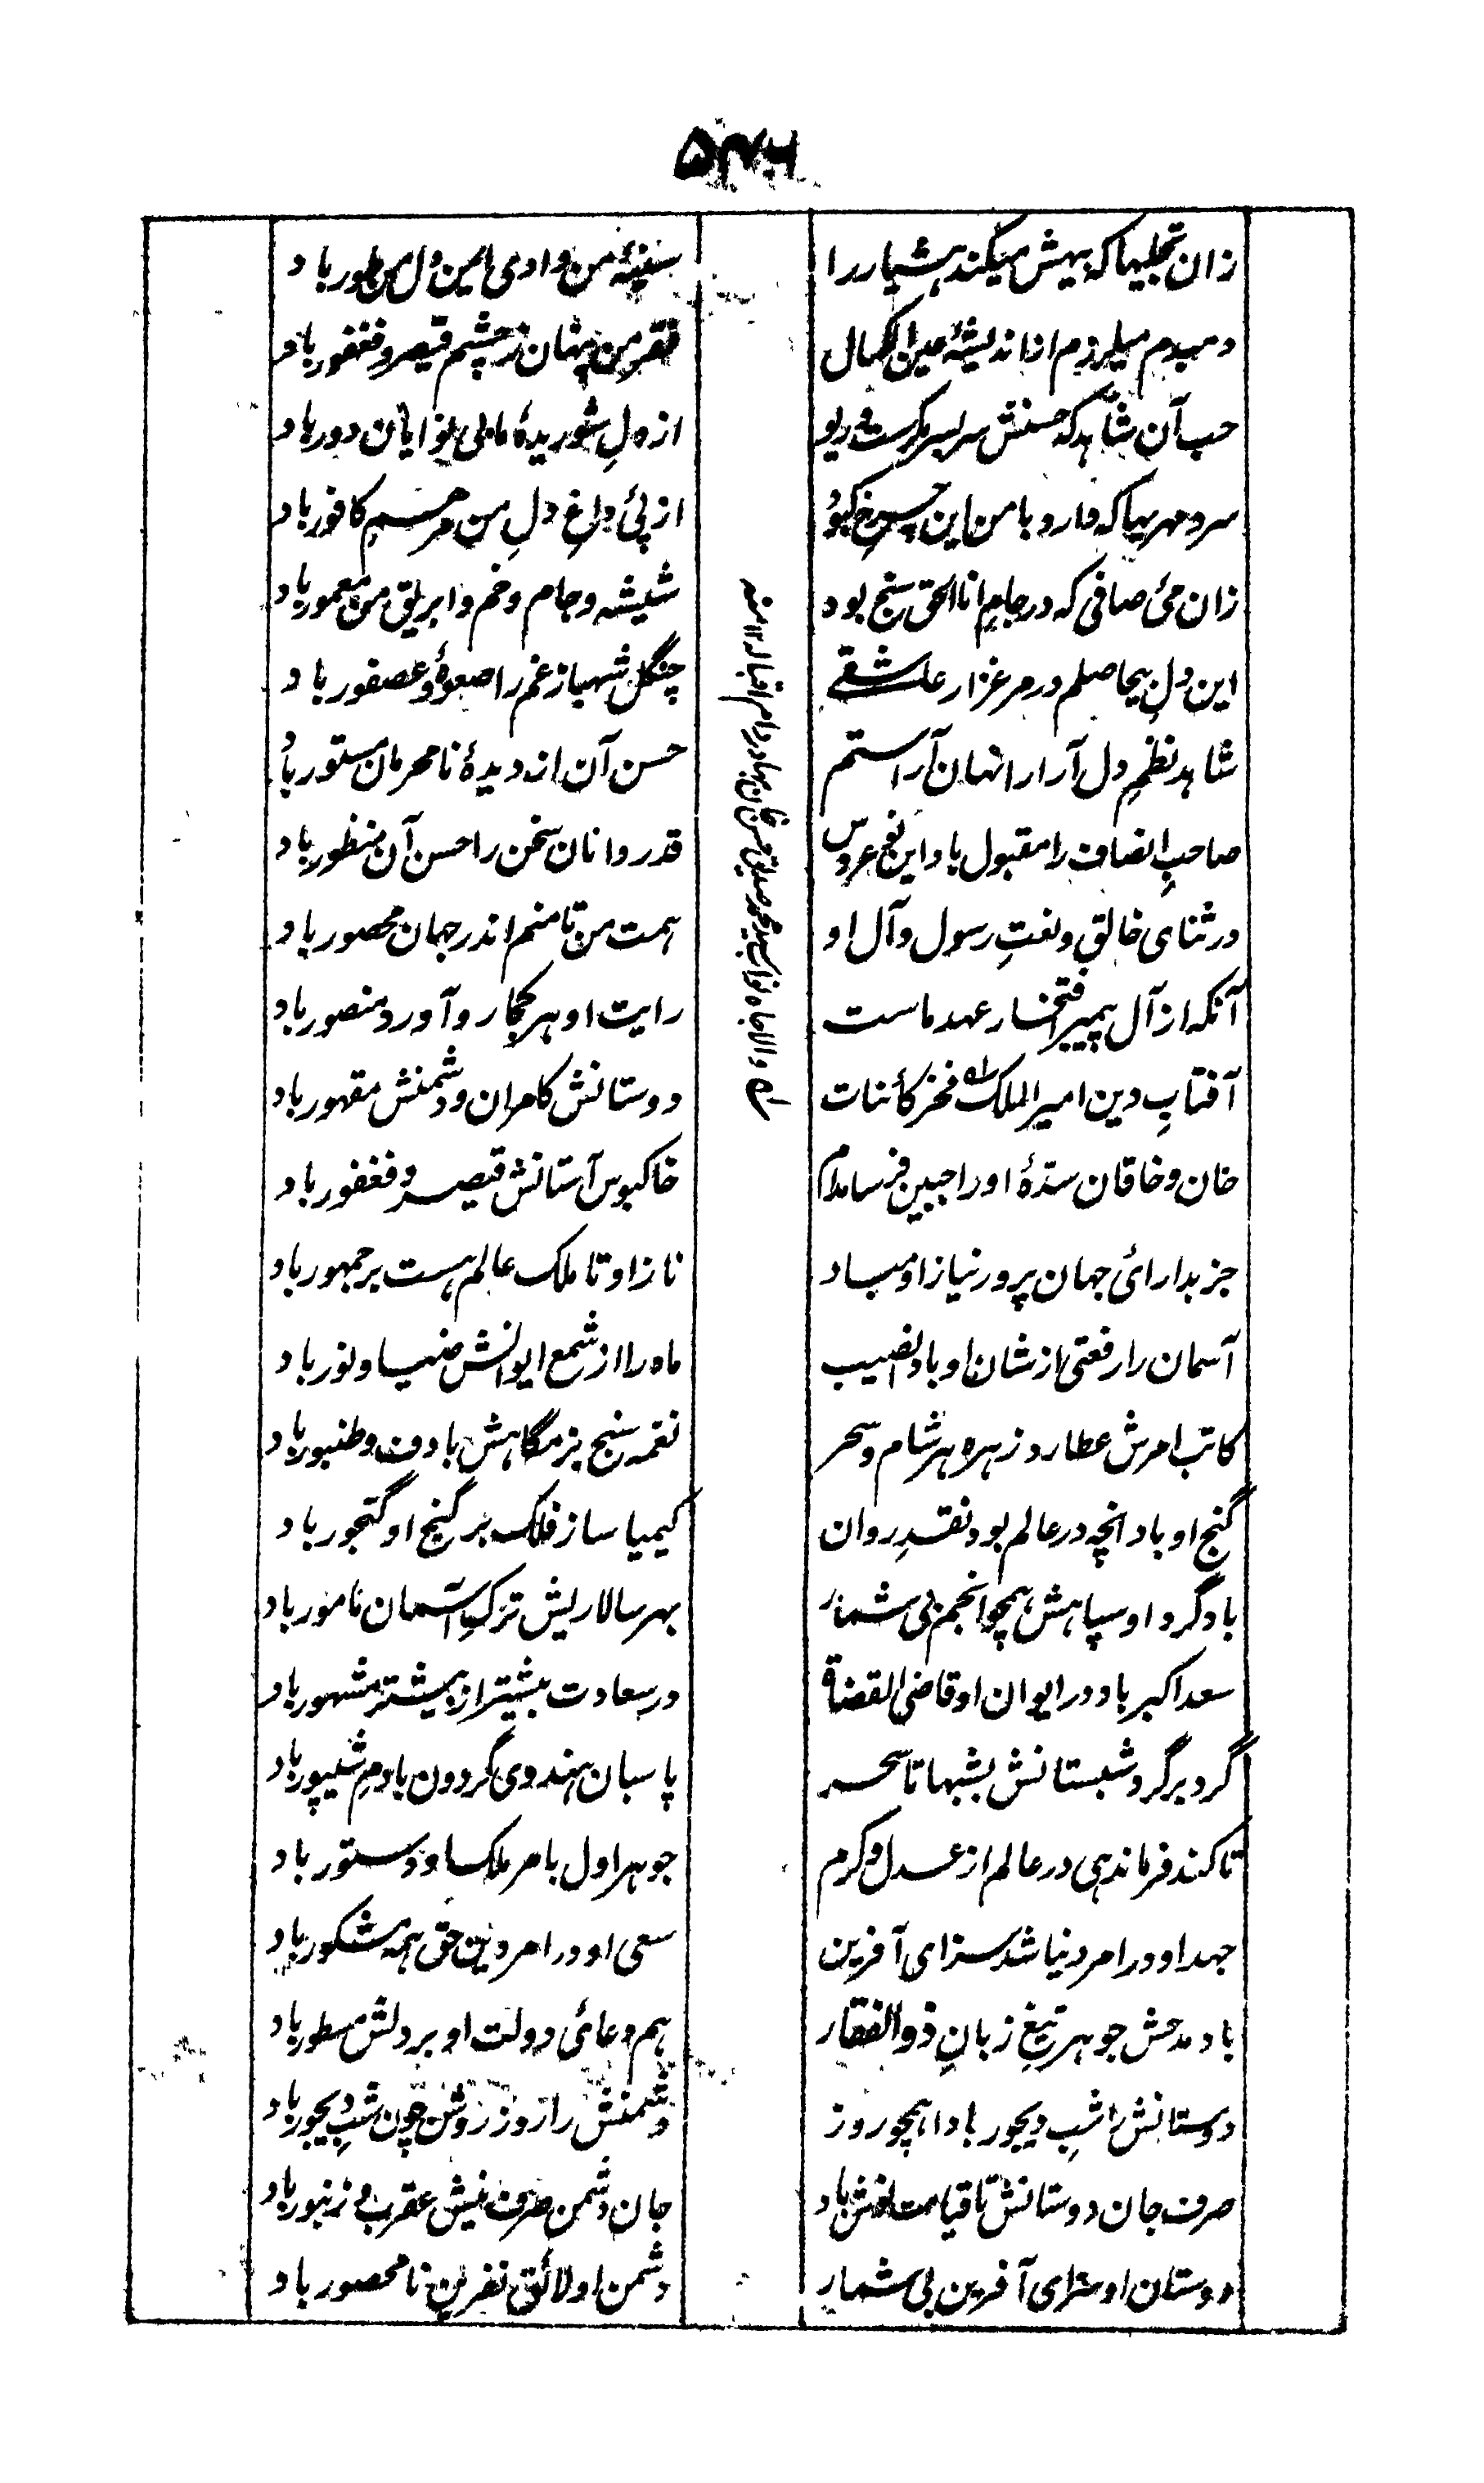 زان تجلیها که بیهش میکند هشیار را
سینهٔ من وادی ایمن دل من طور باد
دمبدم میلرزم از اندیشهٔ عین الکمال
فقر من پنهان ز چشم قیصر و فغفور باد
حب آن شاهد که حسنش سربسر مکرست و ریو
از دلِ شوریدهٔ ما بی نوایان دور باد
سرد مهریها که دارد با من این چرخ کبود
از پئ داغِ دلِ من مرهمِ کافور باد
زان مئ صافی که در جامِ انا الحق سنج بود
شیشه و جام و خم و ابریق من معمور باد
این دلِ بیحاصلم در مرغزار عاشقے
چنگل شهباز غم را صعوهٔ و عصفور باد
شاهد نظمِ دل آرا را نهان آراستم
حسن آن از دیدهٔ نامحرمان مستور باد
صاحبِ انصاف را مقبول باد این نو عروس
قدردانان سخن را حسن آن منظور باد
در ثنای خالق و نعتِ رسول و آل او
همت من تا منم اندر جهان محصور باد
آنکه از آل پیمبر افتخار عهد ماست
رایت او هر کجا رو آورد منصور باد
آفتابِ دین امیر الملک لـه فخر کائنات
دوستانش کامران و دشمنش مقهور باد
خان و خاقان سدّهٔ او را جبین فرسا مدام
خاکبوس آستانش قیصر و فغفور باد
جز بدارائ جهان پرور نیاز او مباد
ناز او تا ملک عالم هست بر جمهور باد
آسمان را رفعتی از شان او بادا نصیب
ماه را از شمع ایوانش ضیا و نور باد
کاتب امرش عطارد زهره هر شام و سحر
نغمه سنج بزمگاهش با دف و طنبور باد
گنج او باد انچه در عالم بود نقدِ روان
کیمیا ساز فلک بر گنج او گنجور باد
باد گرد او سپاهش همچو انجم بی شمار
بهر سالاریش ترکِ آسمان نامور باد
سعد اکبر باد در ایوان او قاضی القضاة
در سعادت بیشتر از پیشتر مشهور باد
گرد بر گرد شبستانش بشبها تا سحر
پاسبان هندوی گردون با دمِ شیپور باد
تا کند فرماندهی در عالم از عدل و کرم
جوهر اول بامر ملک او دستور باد
جهد او در امر دنیا شد سزای آفرین
سعی او در امر دین حق همه مشکور باد
باد مدحش جوهر تیغِ زبانِ ذو الفقار
هم دعائ دولت او بر دلش مسطور باد
دوستانش را شبِ دیجور بادا همچو روز
دشمنش را روز روشن چون شبِ دیجور باد
صرف جان دوستانش تا قیامت نوش باد
جان دشمن صرف نیش عقرب و زنبور باد
دوستان او سزای آفرین بی شمار
دشمن او لائق نفرین نامحصور باد
لـه والاجاه نواب سید محمد صدیق حسن خان بهادر دام اقباله ١٢ منه